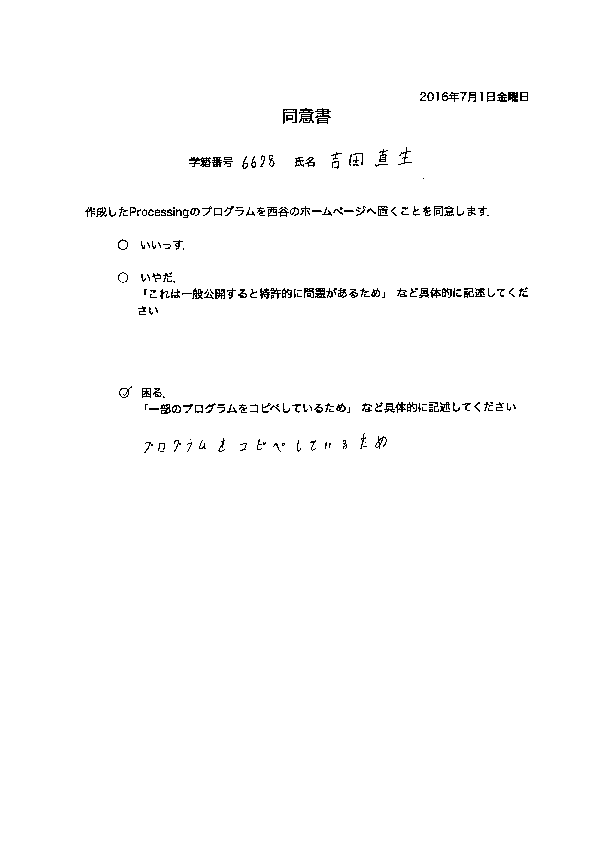 2016年7月1日金曜日
同意書
学籍番号 6628 氏名 吉田 直生
作成したProcessingのプログラムを西谷のホームページへ置くことを同意します.
○ いいっす.
○ いやだ.
「これは一般公開すると特許的に問題があるため」 など具体的に記述してくだ
さい
○ 困る.
「一部のプログラムをコピペしているため」 など具体的に記述してください
プログラムをコピペしているため